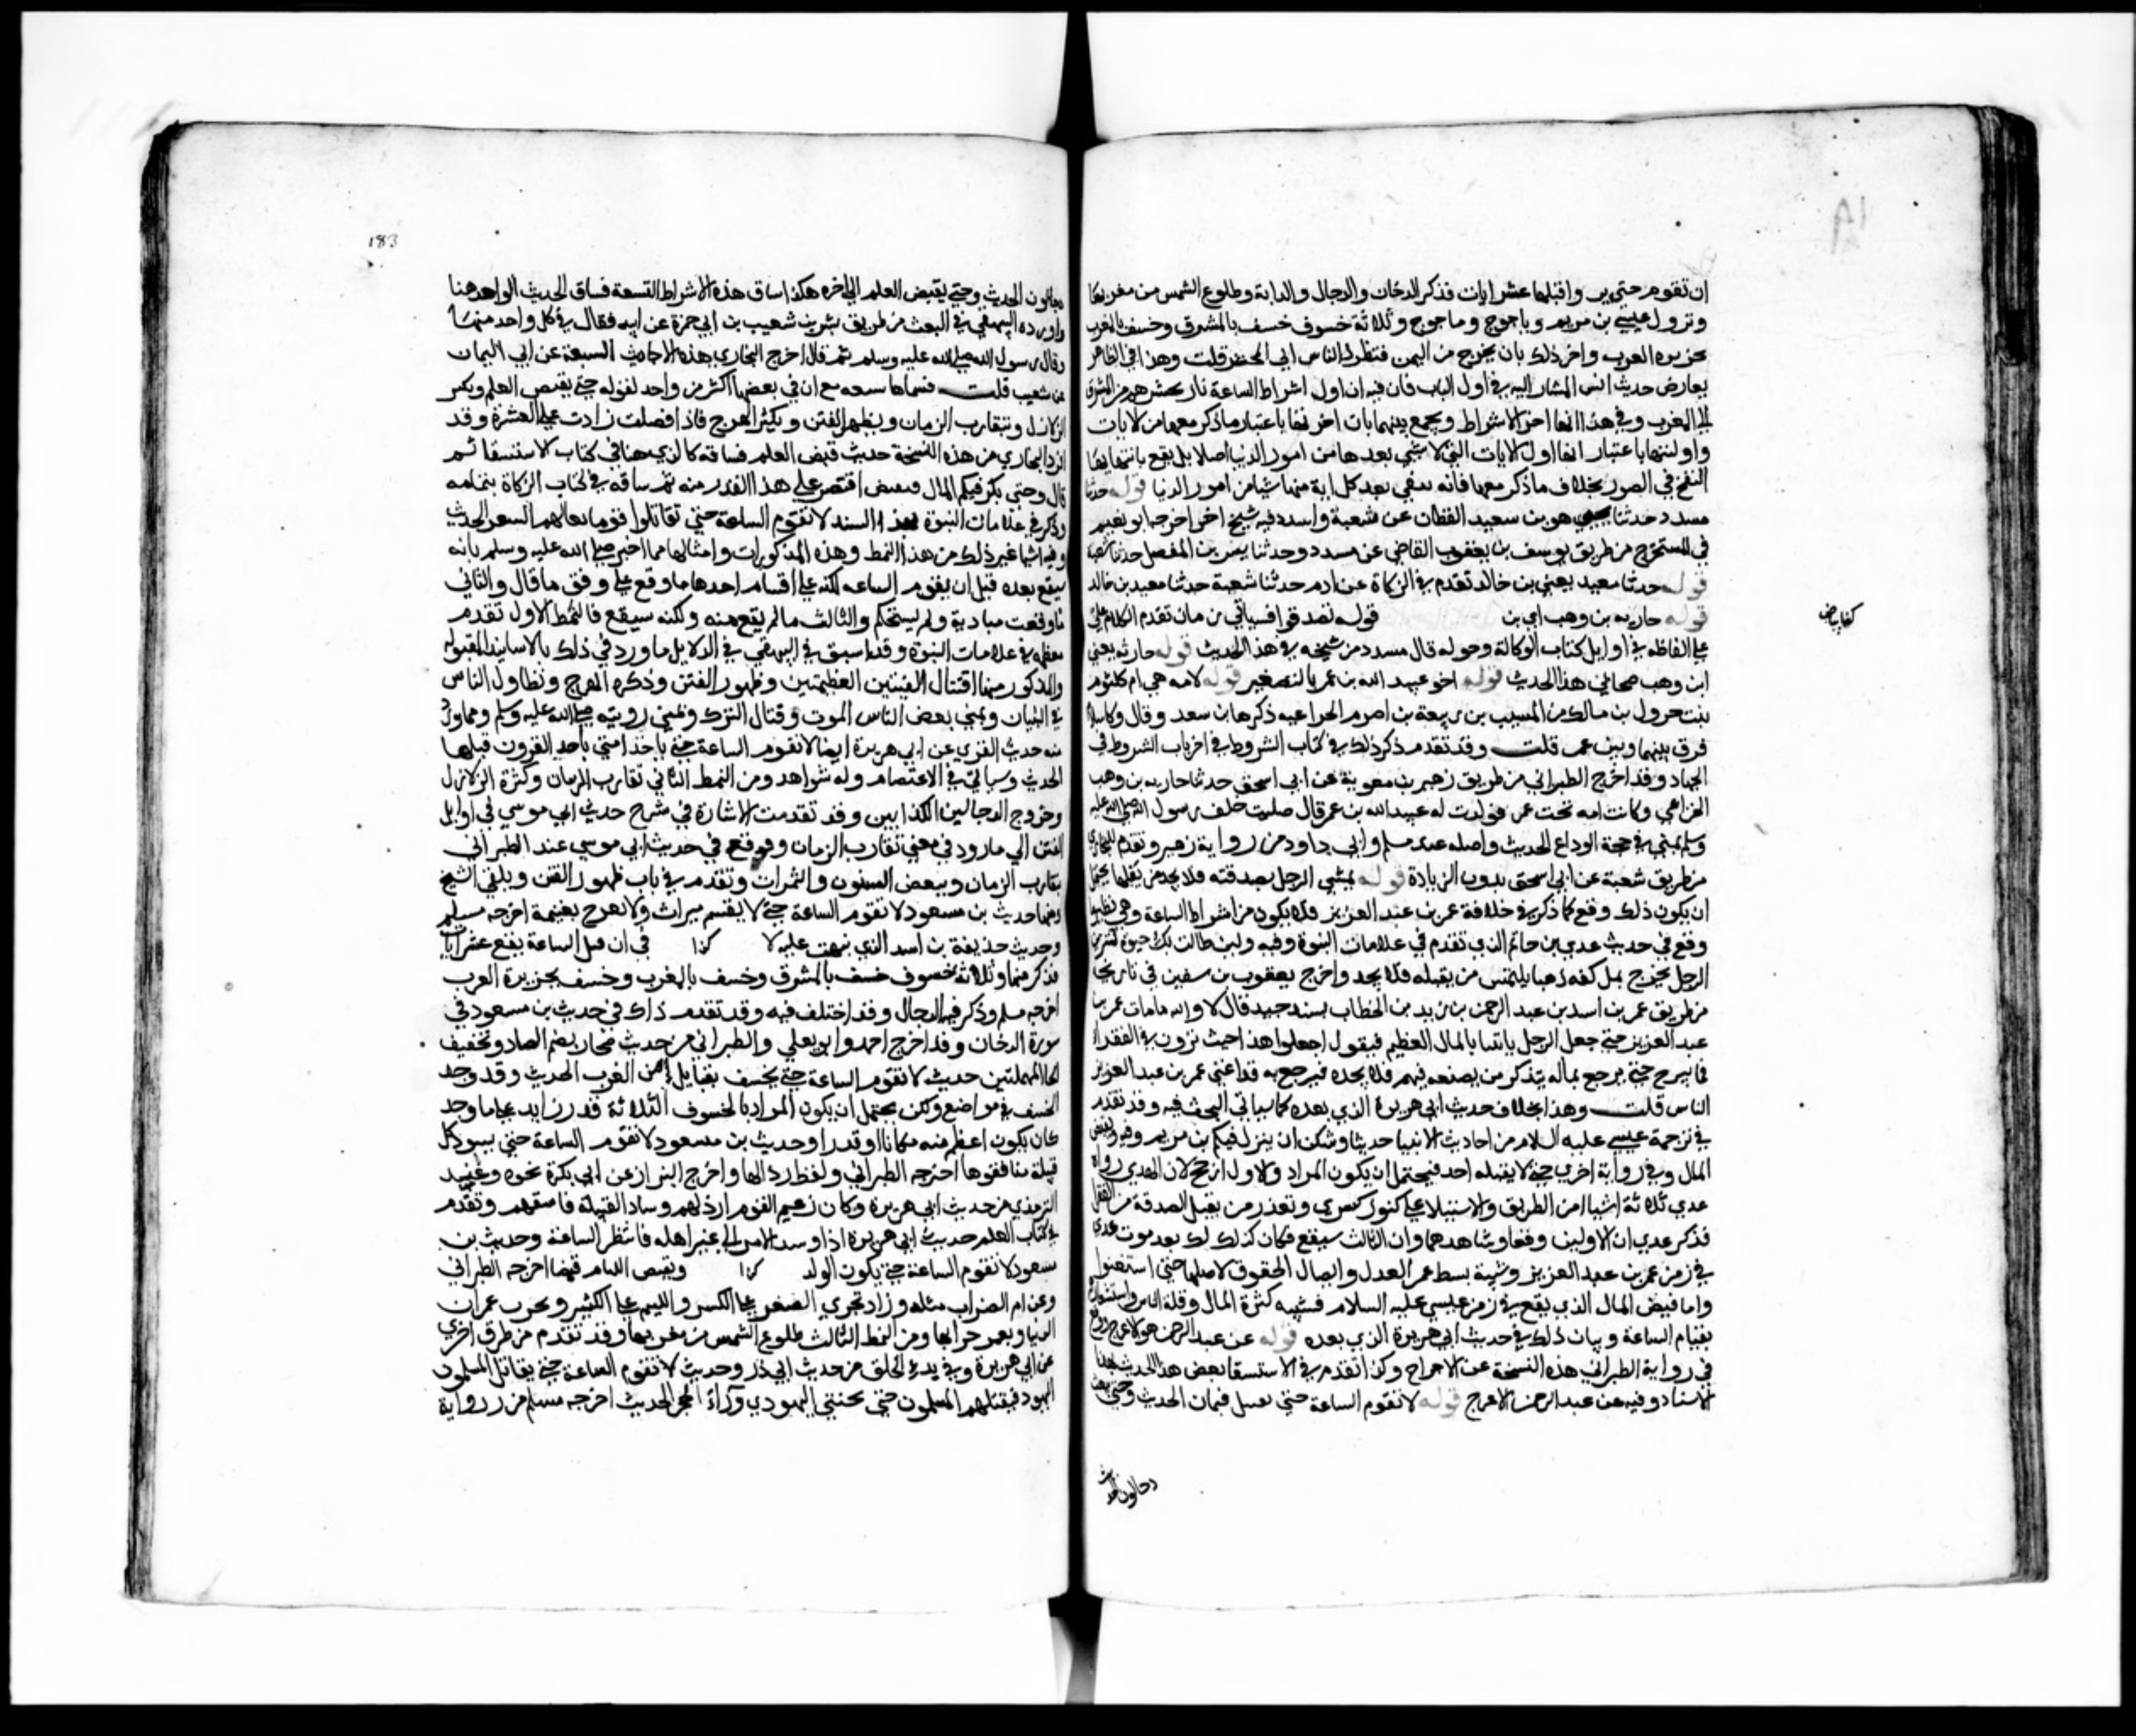 ان تقوم حتى يروا قبلها عشر ايات فذكر الدخان والدجال والدابة وطلوع الشمس من مغربها
ونزول عيسى بن مريم وياجوج وماجوج وثلاثة خسوف خسف بالمشرق وخسف بالمغرب
بجزيرة العرب واخر ذلك نار تخرج من اليمن فتطرد الناس الى المحشر قلت وهذا في الظاهر
يعارض حديث انس المشار اليه في اول الباب فان فيه ان اول اشراط الساعة نار تحشرهم من المشرق
الى المغرب وفي هذا انها اخر الاشراط ويجمع بينهما بان اخريتها باعتبار ما ذكر معها من الايات
واوليتها باعتبار انها اول الايات التي لا شي بعدها من امور الدنيا اصلا بل يقع بانتهايها
النفخ في الصور بخلاف ما ذكر معها فانه يبقى بعد كل اية منها شيا من امور الدنيا قوله حدثنا
مسدد حدثنا يحيى هو بن سعيد القطان عن شعبة ولمسدد فيه شيخ اخر اخرجه ابو نعيم
في المستخرج من طريق يوسف بن يعقوب القاضي عن مسدد حدثنا بشر بن المفضل حدثنا شعبة
قوله حدثنا معبد يعني بن خالد تقدم في الزكاة عن ادم حدثنا شعبة حدثنا معبد بن خالد
قوله حارثه بن وهب اي بن قوله تصدقوا فسياتي زمان تقدم الكلام على
كذا بياض
على الفاظه في اوايل كتاب الوكالة وحوله قال مسدد من شيخه في هذا الحديث قوله حارثه يعني
ابن وهب صحابي هذا الحديث قوله اخو عبيد الله بن عمر بالتصغير قوله لامه هي ام كلثوم
بنت جرول بن مالك بن المسيب بن ربيعة بن اصرم الخزاعيه ذكرها بن سعد وقال وكان الاسلام
فرق بينها وبين عمر قلت وقد تقدم ذكر ذلك في كتاب الشروط في اخر باب الشروط في
الجهاد وقد اخرج الطبراني من طريق زهير بن معوية عن ابي اسحق حدثنا حارثه بن وهب
الخزاعي وكانت امه تحت عمر فولدت له عبيد الله بن عمر قال صليت خلف رسول الله صلى الله عليه
وسلم بمنى في حجة الوداع الحديث واصله عند مسلم وابي داود من رواية زهير وتقدم للبخاري
من طريق شعبة عن ابي اسحق بدون الزيادة قوله يمشي الرجل بصدقته فلا يجد من يقبلها يحتمل
ان يكون ذلك وقع كما ذكر في خلافة عمر بن عبد العزيز فلا يكون من اشراط الساعة وهي نظير ما
وقع في حديث عدي بن حاتم الذي تقدم في علامات النبوة وفيه ولين طالت بك حيوة لترين
الرجل يخرج بمل كفه ذهبا يلتمس من يقبله فلا يجد واخرج يعقوب بن سفين في تاريخه
من طريق عمر بن اسد بن عبد الرحمن بن زيد بن الخطاب بسند جيد قال لا والله ما مات عمر بن
عبد العزيز حتى جعل الرجل ياتينا بالمال العظيم فيقول اجعلوا هذا حيث ترون في الفقراء
فما يبرح حتى يرجع بماله يتذكر من يضعه فيهم فلا يجده فيرجع به قد اغنى عمر بن عبد العزيز
الناس قلت وهذا بخلاف حديث ابي هريرة الذي بعده كما سياتي البحث فيه وقد تقدم
في ترجمة عيسى عليه السلام من احاديث الانبيا حديثا وشكن ان ينزل فيكم بن مريم وفيه ويفيض
المال وفي رواية اخرى حتى لا يقبله احد فيحتمل ان يكون المراد والاول ارجح لان الذي رواه
عدي ثلاثة اشيا امن الطريق والاستيلا على كنوز كسرى وتعذر من يقبل الصدقة من الفقرا
فذكر عدي ان الاولين وقعا وشاهدهما وان الثالث سيقع فكان كذلك لك بعد موت عدي
في زمن عمر بن عبد العزيز وسببه بسط عمر العدل وايصال الحقوق لاهلها حتى استغنوا
واما فيض المال الذي يقع في زمن عيسى عليه السلام فسببه كثرة المال وقلة الناس واستشعارهم
بقيام الساعة وبيان ذلك في حديث ابي هريرة الذي بعده قوله عن عبد الرحمن هو الاعرج ووقع
في رواية الطبراني هذه النسخة عن الاعرج وكذا تقدم في الاستسقا بعض هذا الحديث بهذا
الاسناد وفيه عن عبد الرحمن الاعرج قوله لا تقوم الساعة حتى تقتتل فيتان الحديث وحتى يبعث
دجالون الحديث
183
دجالون الحديث وحتى يقبض العلم الى اخره هكذا ساق هذه الاشراط التسعة فساق الحديث الواحد هنا
واورده البيهقي في البعث من طريق بشر بن شعيب بن ابي حمزة عن ابيه فقال في كل واحد منها
وقال رسول الله صلى الله عليه وسلم ثم قال اخرج البخاري هذه الاحاديث السبعة عن ابي اليمان
عن شعيب قلت فسماها سبعه مع ان في بعضها اكثر من واحد لقوله حتى يقبض العلم وتكثر
الزلازل ويتقارب الزمان وتظهر الفتن ويكثر الهرج فاذا فصلت زادت على العشرة وقد
افرد البخاري من هذه النسخة حديث قبض العلم فساقه كالذي هنا في كتاب الاستسقا ثم
قال وحتى يكثر فيكم المال فيفيض اقتصر على هذا القدر منه ثم ساقه في كتاب الزكاة بتمامه
وذكر في علامات النبوة بهذا السند لا تقوم الساعة حتى تقاتلوا قوما نعالهم الشعر الحديث
وفيه اشيا غير ذلك من هذا النمط وهذه المذكورات وامثالها مما اخبر صلى الله عليه وسلم بانه
سيقع بعده قبل ان يقوم الساعه لكنه على اقسام احدها ما وقع على وفق ما قال والثاني
ما وقعت مباديه ولم يستحكم والثالث ما لم يقع منه ولكنه سيقع فالنمط الاول تقدم
معظمه في علامات النبوة وقد استوفى البيهقي في الدلايل ما ورد في ذلك بالاسانيد المقبوله
والمذكور منها اقتتال الفيتين العظيمتين وظهور الفتن وكثرة الهرج وتطاول الناس
في البنيان وتمني بعض الناس الموت وقتال الترك وتمني رويته صلى الله عليه وسلم ومما ورد
منه حديث المقبري عن ابي هريرة ايضا لا تقوم الساعة حتى ياخذ امتي باخذ القرون قبلها
الحديث وسياتي في الاعتصام وله شواهد ومن النمط الثاني تقارب الزمان وكثرة الزلازل
وخروج الدجالين الكذابين وقد تقدمت الاشارة في شرح حديث ابي موسى في اوايل
الفتن الى ما ورد في معنى تقارب الزمان ووقع في حديث ابي موسى عند الطبراني
يتقارب الزمان وينقص السنون والثمرات وتقدم في باب ظهور الفتن ويلقى الشح
ومنها حديث بن مسعود لا تقوم الساعة حتى لا يقسم ميراث ولا يفرح بغنيمة اخرجه مسلم
وحديث حذيفة بن اسيد الذي نبهت عليه لا كذا في ان قبل الساعة يقع عشر ايات
فذكر منها وثلاثة خسوف خسف بالمشرق وخسف بالمغرب وخسف بجزيرة العرب
اخرجه مسلم وذكر فيه الدخان وقد اختلف فيه وقد تقدم ذلك في حديث بن مسعود في
سورة الدخان وقد اخرج احمد وابو يعلى والطبراني من حديث صحار بضم الصاد وتخفيف
الحا المهملتين حديث لا تقوم الساعة حتى يخسف بقبايل من العرب الحديث وقد وجد
الخسف في مواضع ولكن يحتمل ان يكون المراد بالخسوف الثلاثة قدر زايد على ما وجد
كان يكون اعظم منه مكانا او قدرا وحديث بن مسعود لا تقوم الساعة حتى يسود كل
قبيلة منافقوها اخرجه الطبراني ولفظ رذالها واخرج البزار عن ابي بكرة نحوه وعند
الترمذي من حديث ابي هريرة وكان زعيم القوم ارذلهم وساد القبيلة فاسقهم وتقدم
في كتاب العلم حديث ابي هريرة اذا وسد الامر الى غير اهله فانتظر الساعة وحديث بن
مسعود لا تقوم الساعة حتى يكون الولد كذا ويفيض الليام فيضا اخرجه الطبراني
وعن ام الضراب مثله وزاد تجري الصغير على الكبير والليم على الكثير ويخرب عمران
الدنيا ويعمر خرابها ومن النمط الثالث طلوع الشمس من مغربها وقد تقدم من طرق اخرى
عن ابي هريرة وفي بدء الخلق من حديث ابي ذر وحديث لا تقوم الساعة حتى يقاتل المسلمون
اليهود فيقتلهم المسلمون حتى يختبي اليهودي وراء الحجر الحديث اخرجه مسلم من رواية